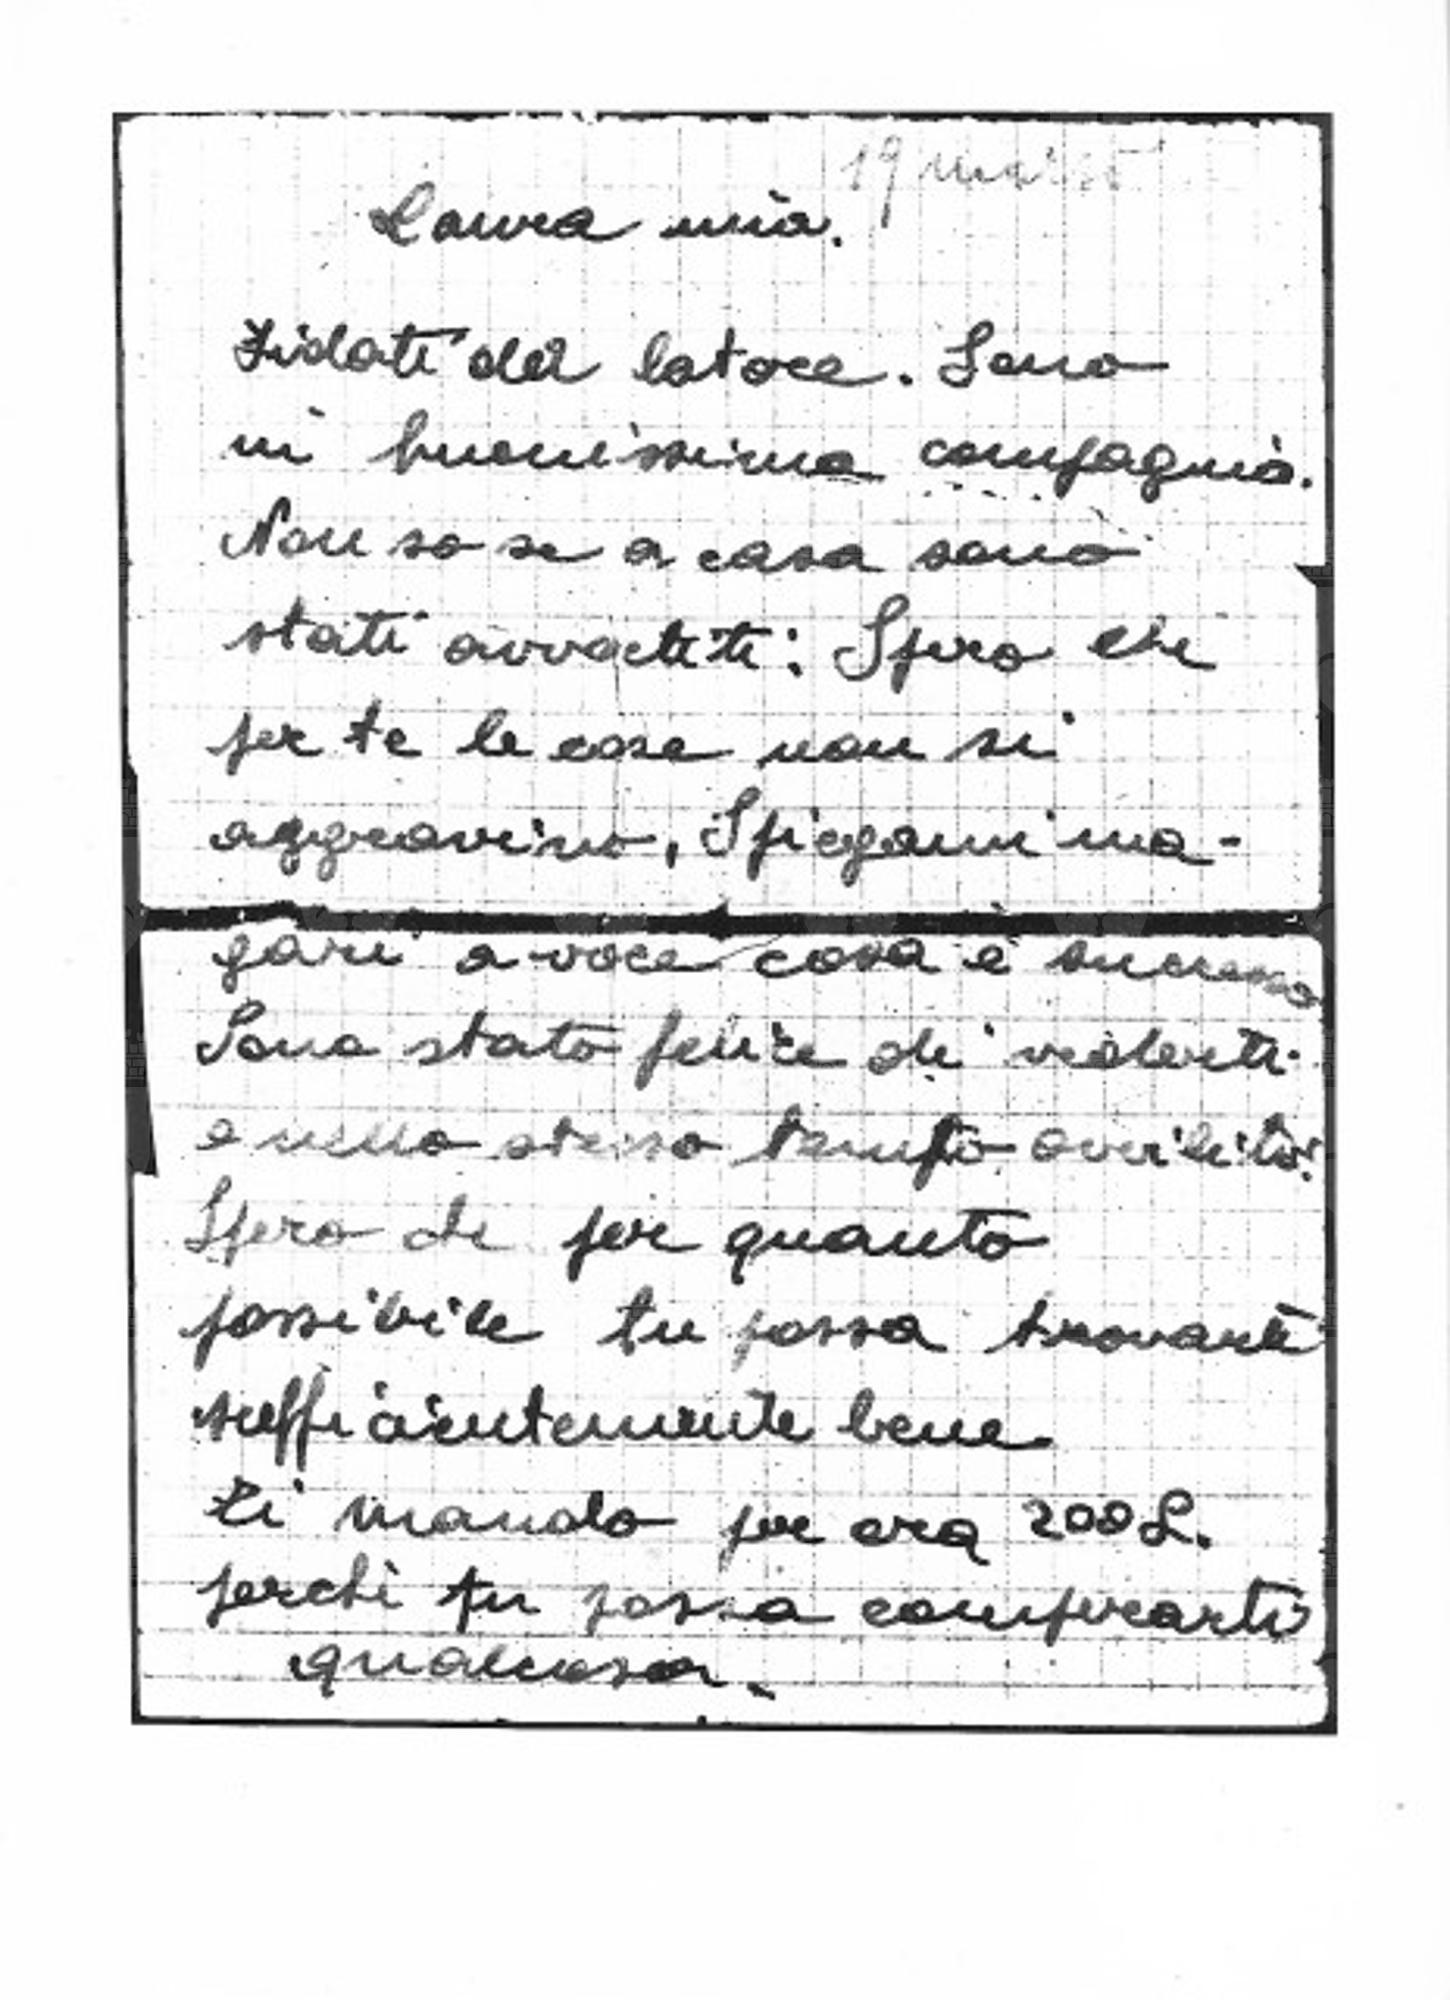 19 marzo
Laura mia.
Fidati del latore. Sono
in buonissima compagnia.
Non so se a casa sono
stati avvertiti: Spero che
per te le cose non si
aggravino, Spiegami ma-
gari a voce cosa è successo
Sono stato felice di vederti
e nello stesso tempo avvilito!
Spero che per quanto
possibile tu possa trovarti
sufficientemente bene
ti mando per ora 200 L.
perchè tu possa comperarti
qualcosa.